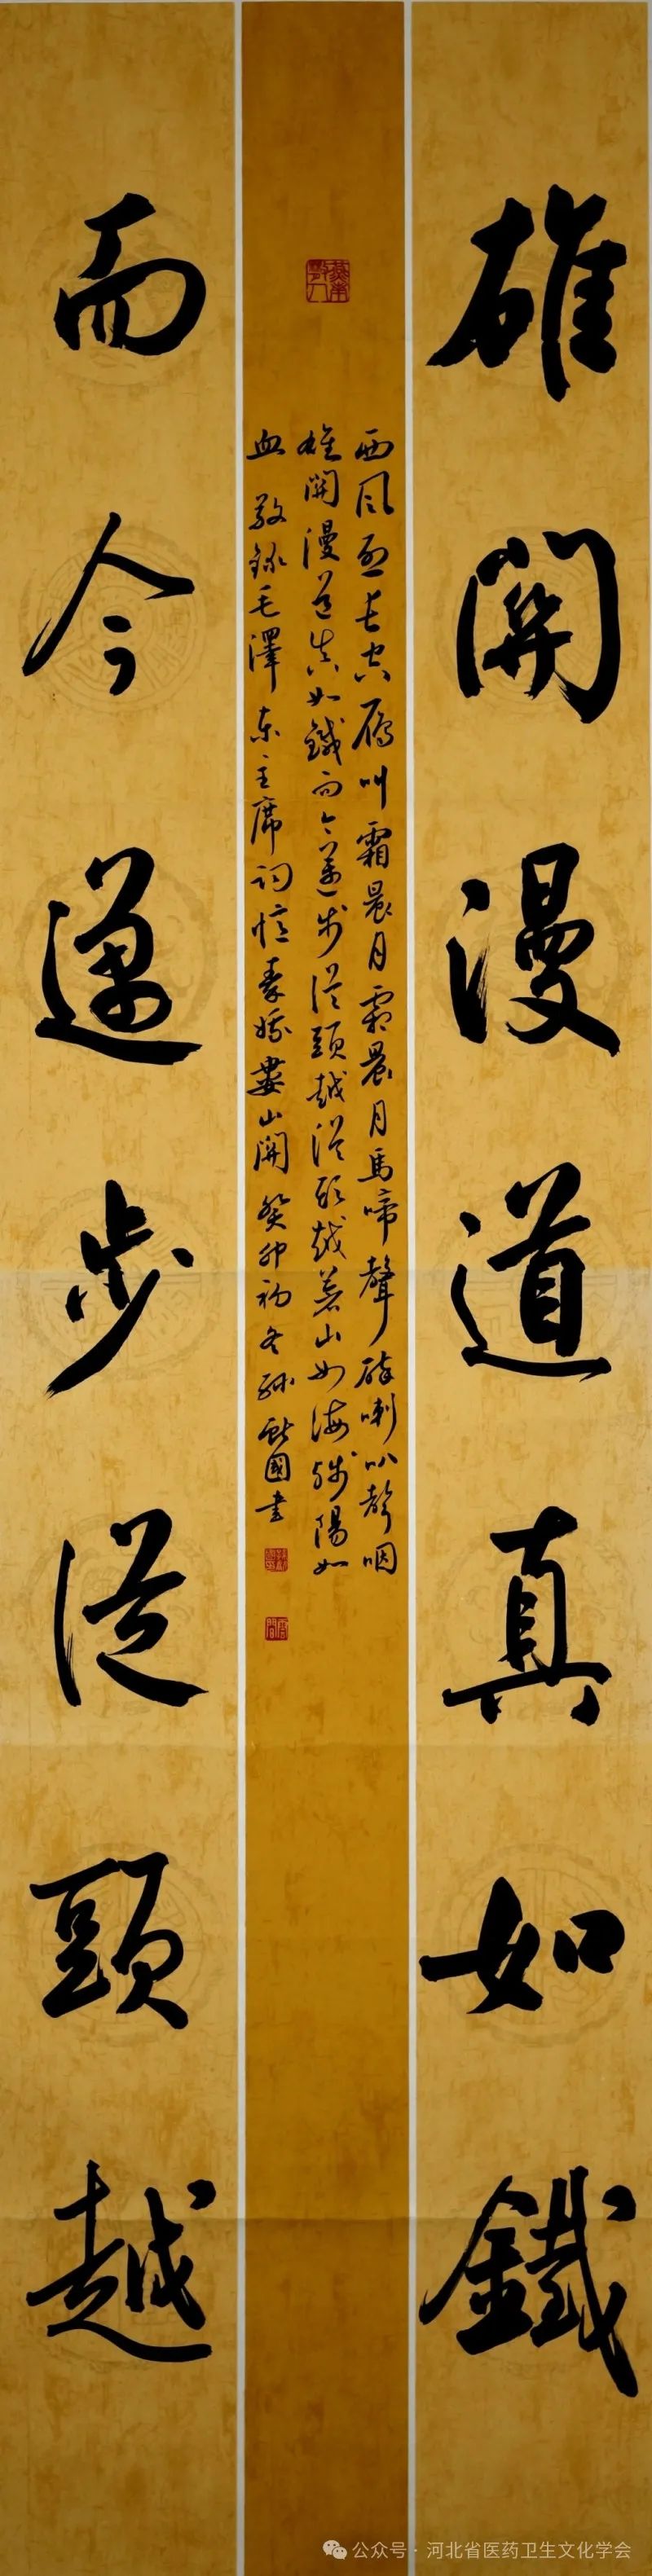 雄關漫道真如鐵
西風烈長空雁叫霜晨月霜晨月馬啼聲碎喇叭聲咽
雄關漫道真如鐵而今邁步從頭越從頭越蒼山如海殘陽如
血 敬錄毛澤東主席詞憶秦娥婁山關 癸卯初冬 國書
而今邁步從頭越
公众号·河北省医药卫生文化学会